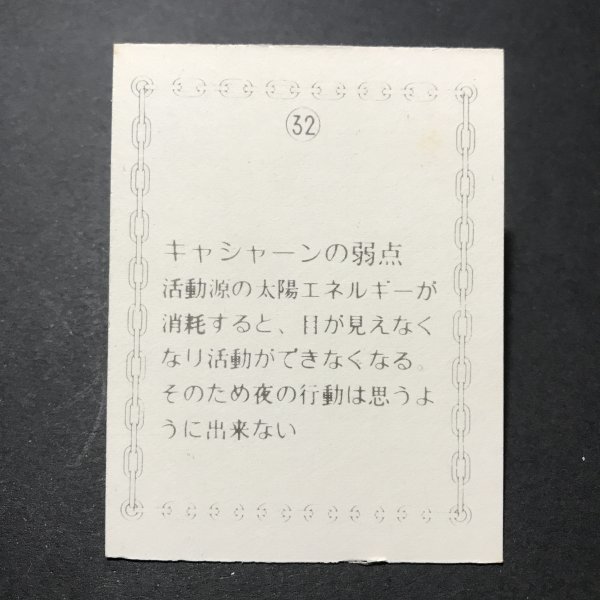 32
キャシャーンの弱点
活動源の太陽エネルギーが
消耗すると、目が見えなく
なり活動ができなくなる。
そのため夜の行動は思うよ
うに出来ない